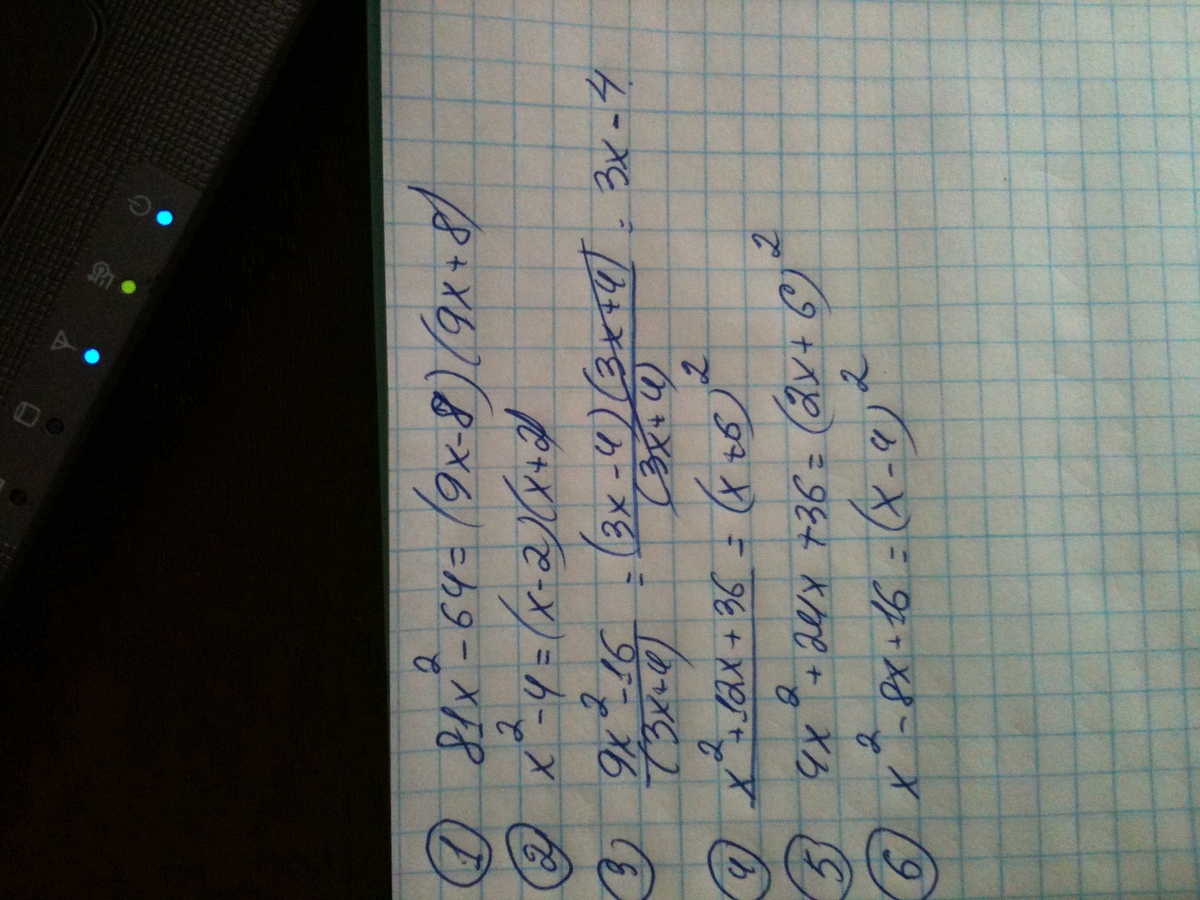 ① 81x² - 64 = (9x - 8)(9x + 8)
② x² - 4 = (x - 2)(x + 2)
③ (9x² - 16)/(3x + 4) = (3x - 4)(3x + 4)/(3x + 4) = 3x - 4
④ x² + 12x + 36 = (x + 6)²
⑤ 4x² + 24x + 36 = (2x + 6)²
⑥ x² - 8x + 16 = (x - 4)²